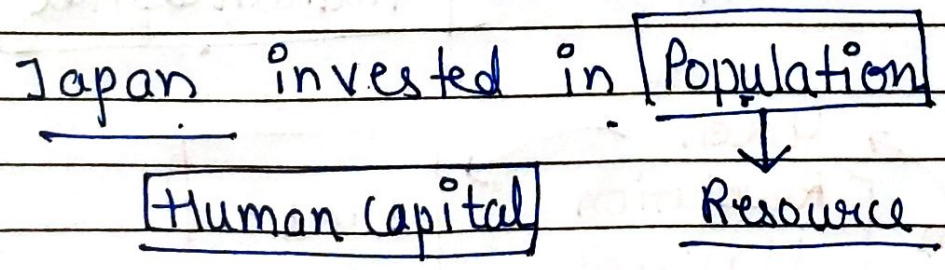 Japan invested in Population
Human Capital Resource